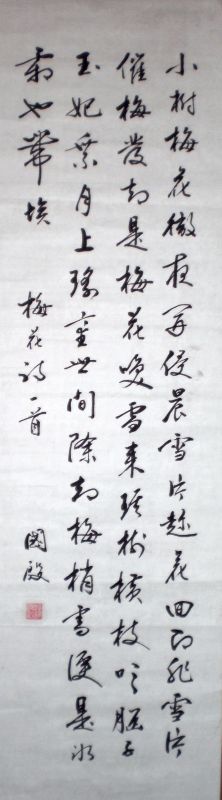 小樹梅花徹夜開侵晨雪片趁花回即非雪片
催梅發却是梅花喚雪來琪樹橫枝吹腦子
玉妃乘月上瑤臺世間除却梅梢雪便是冰
霜也帶埃 梅花詩一首 國殷